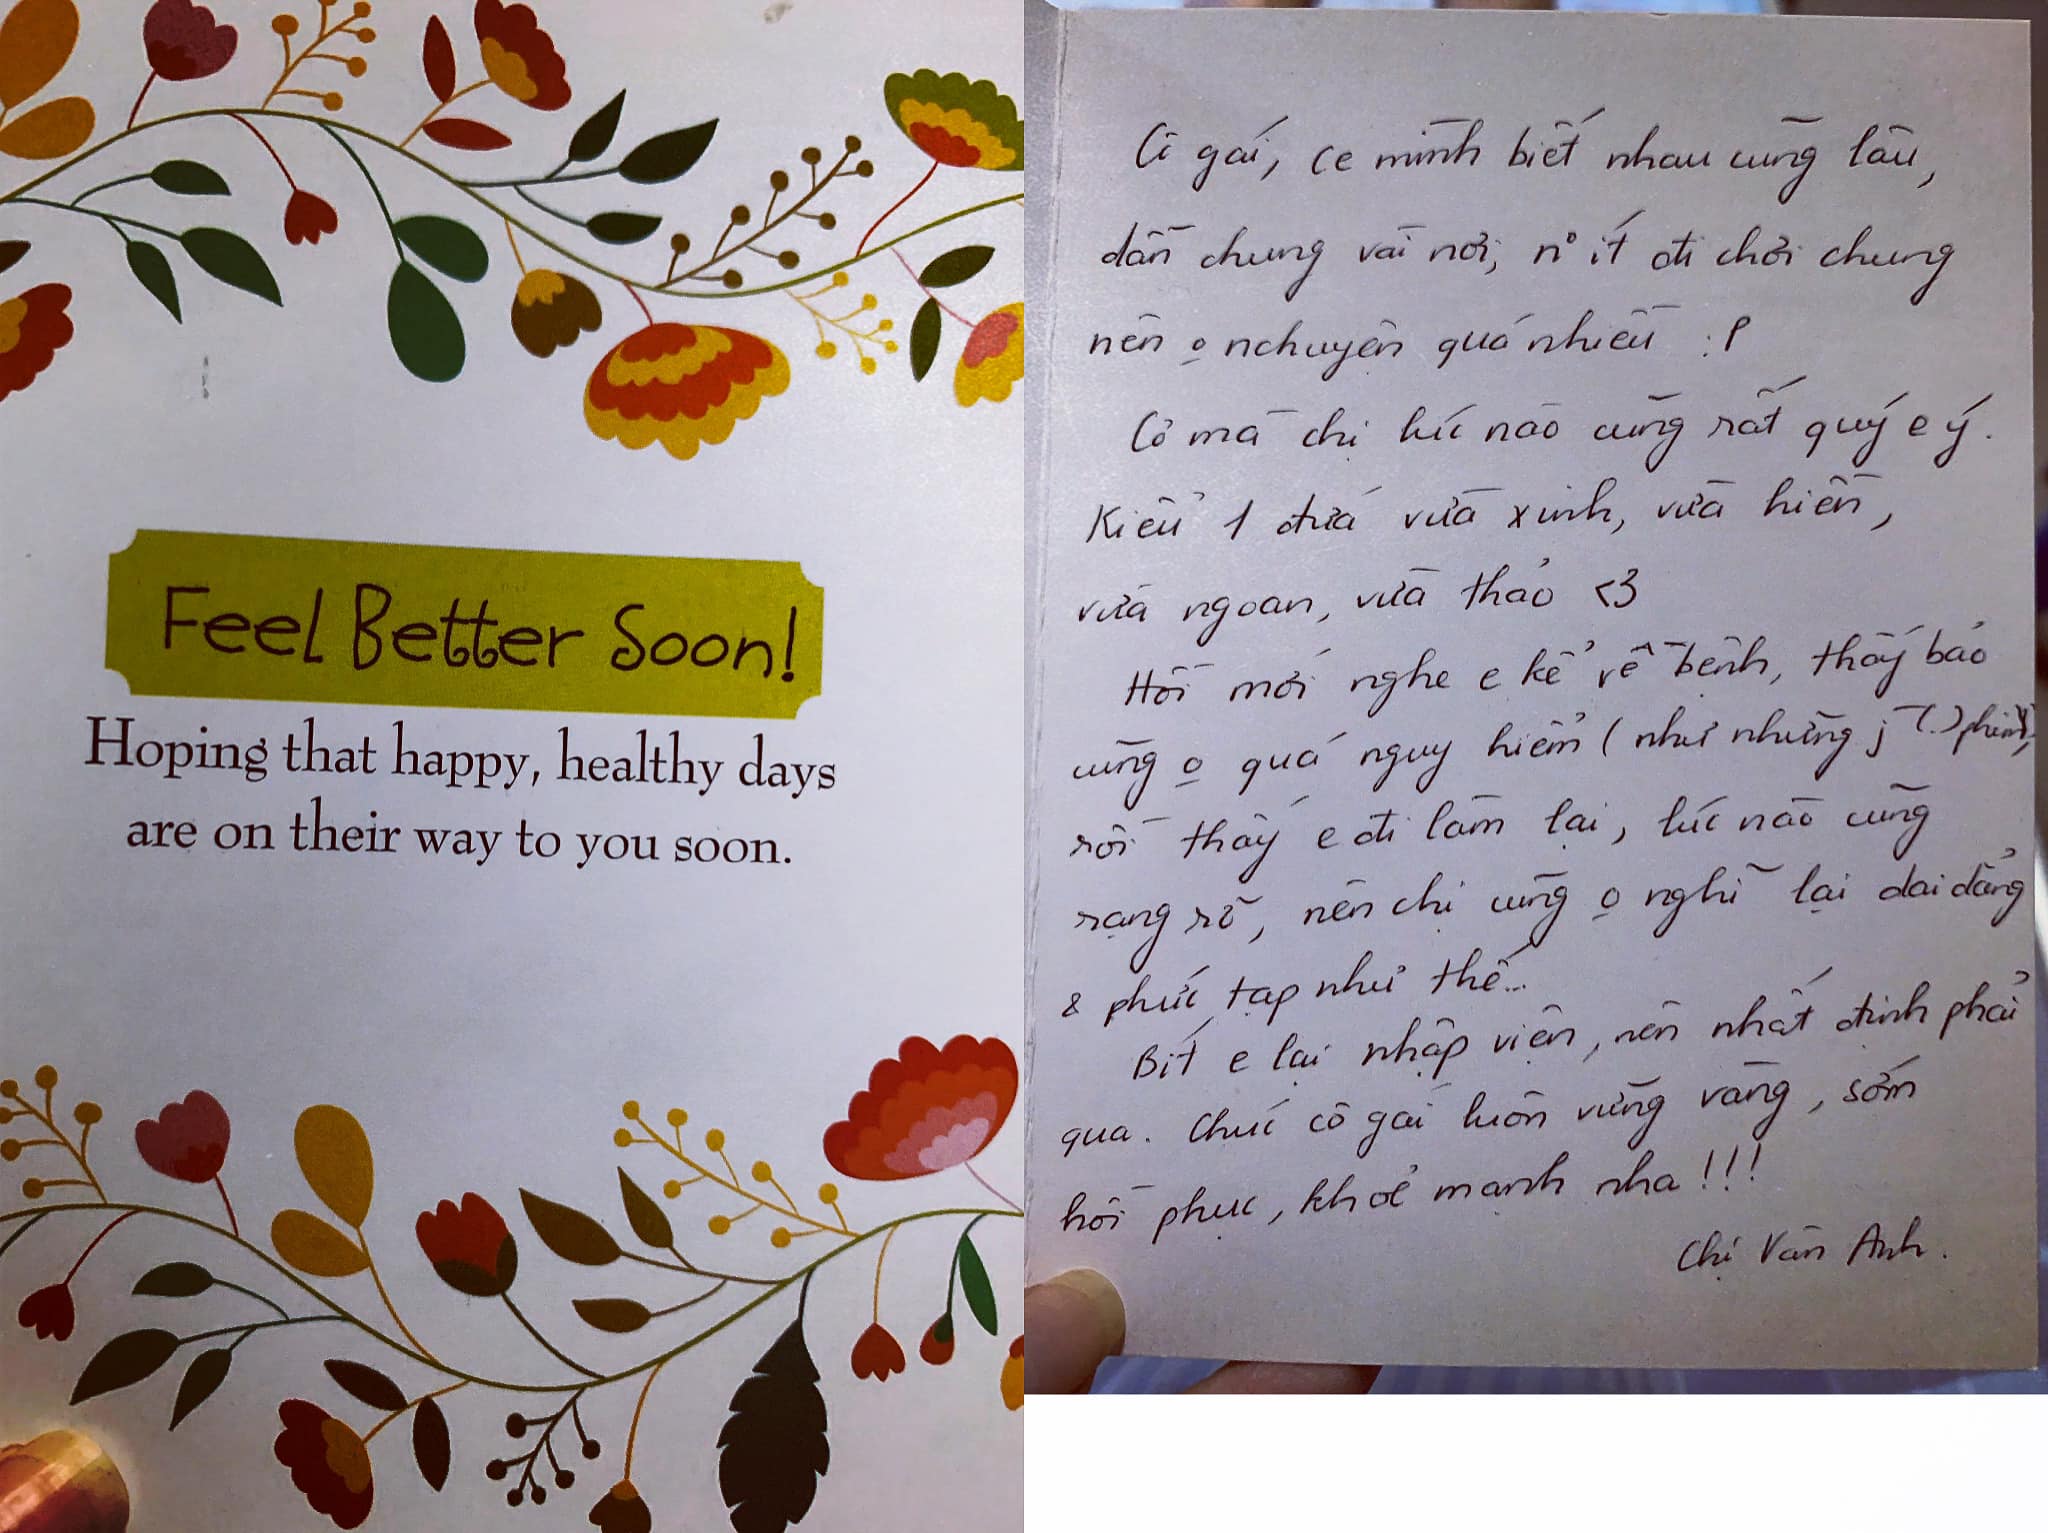 Feel Better Soon!
Hoping that happy, healthy days
are on their way to you soon.
Cô gái, ce mình biết nhau cũng lâu,
dần chung vài nơi, n° ít đi chơi chung
nên o nchuyện quá nhiều :P
Cơ mà chị lúc nào cũng rất quý e ý.
Kiểu 1 đứa vừa xinh, vừa hiền,
vừa ngoan, vừa thảo <3
Hồi mới nghe e kể về bệnh, thấy bảo
cũng o quá nguy hiểm (như những j (.) phim),
rồi thấy e đi làm lại, lúc nào cũng
rạng rỡ, nên chị cũng o nghĩ lại dai dẳng
& phức tạp như thế...
Bít e lại nhập viện, nên nhất định phải
qua. Chúc cô gái luôn vững vàng, sớm
hồi phục, khoẻ mạnh nha!!!
Chị Vân Anh.